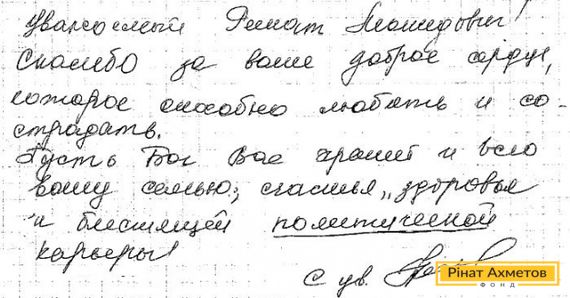 Уважаемый Ринат Леонидович!
Спасибо за ваше доброе сердце,
которое способно любить и со-
страдать.
Пусть Бог Вас хранит и всю
вашу семью; счастья, здоровья
и блестящей политической
карьеры!
С ув.
Рінат Ахметов
ФОНД